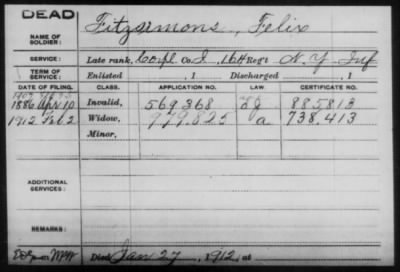 DEAD
NAME OF SOLDIER: Fitzsimons, Felix
SERVICE: Late rank, Corpl Co. I, 164 Reg't N.Y. Inf
TERM OF SERVICE: Enlisted , 1 Discharged , 1
DATE OF FILING. CLASS. APPLICATION NO. LAW. CERTIFICATE NO.
1886 Apr 10 Invalid, 569,368 885,813
1912 Feb 2 Widow, 979,825 a 738,413
Minor,
ADDITIONAL SERVICES:
REMARKS:
Died Jan 27, 1912 at